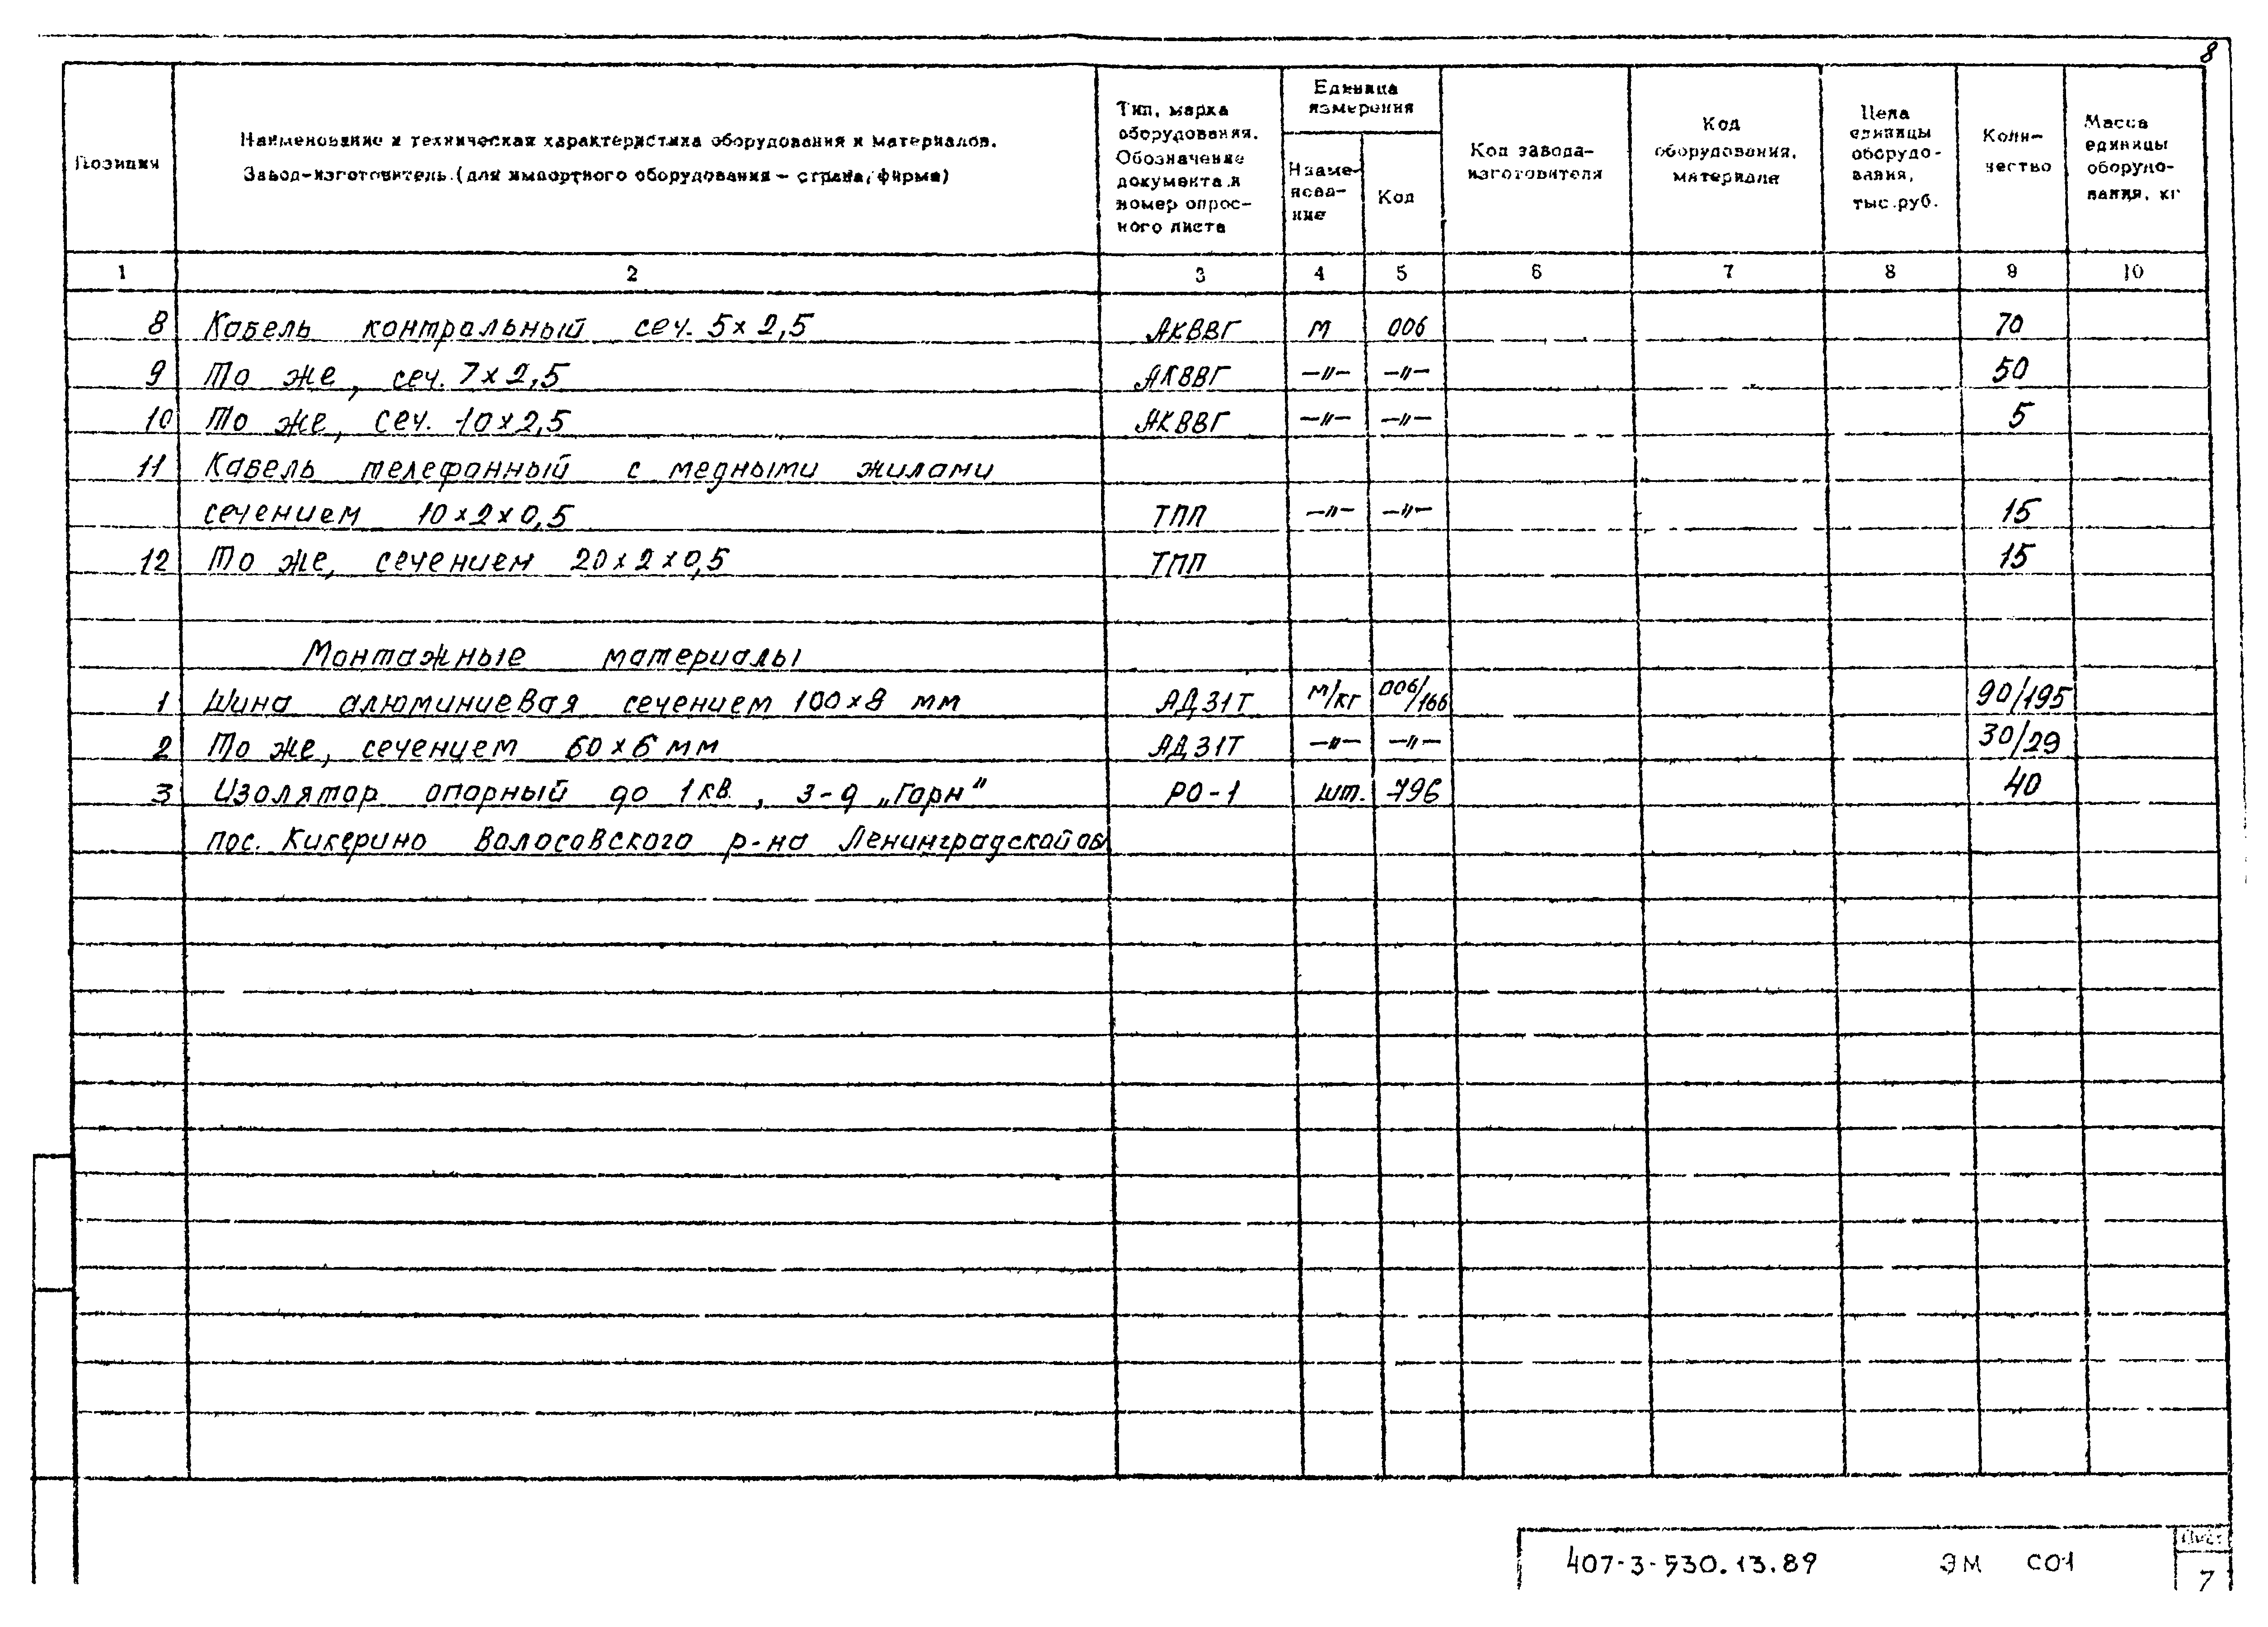 8
Позиция
Наименование и техническая характеристика оборудования и материалов.
Завод-изготовитель (для импортного оборудования – страна, фирма)
Тип, марка
оборудования.
Обозначение
документа и
номер опрос-
ного листа
Единица
измерения
Наиме-
нова-
ние
Код
Код завода-
изготовителя
Код
оборудования,
материала
Цена
единицы
оборудо-
вания,
тыс.руб.
Коли-
чество
Масса
единицы
оборудо-
вания, кг
1 2 3 4 5 6 7 8 9 10
8 Кабель контрольный сеч. 5×2,5 АКВВГ м 006 70
9 То же, сеч. 7×2,5 АКВВГ –"– –"– 50
10 То же, сеч. 10×2,5 АКВВГ –"– –"– 5
11 Кабель телефонный с медными жилами
сечением 10×2×0,5 ТПП –"– –"– 15
12 То же, сечением 20×2×0,5 ТПП 15
Монтажные материалы
1 Шина алюминиевая сечением 100×8 мм АД31Т м/кг 006/166 90/195
2 То же, сечением 60×6 мм АД31Т –"– –"– 30/29
3 Изолятор опорный до 1кв., з-д „Горн" РО-1 шт. 796 40
пос. Кикерино Волосовского р-на Ленинградской об
407-3-530.13.89 ЭМ СО1
Лист
7